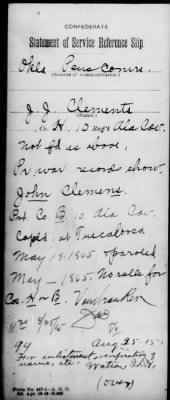 CONFEDERATE
Statement of Service Reference Slip.
Okla Pens Comr.
(Source of communication.)
J. J. Clements
(Name.)
, Co. H, 10 Reg't Ala Cav.
Not fd as above,
Pr war records show
John Clemens.
Pvt. Co B 10 Ala Cav.
Capd. at Tuscaloosa
May 1865. paroled
May – 1865. No rolls for
Cos. H or B.
94 Aug 25-15.
For enlistment,
name, etc.
(over)
Form No. 447-1—A. G. O.